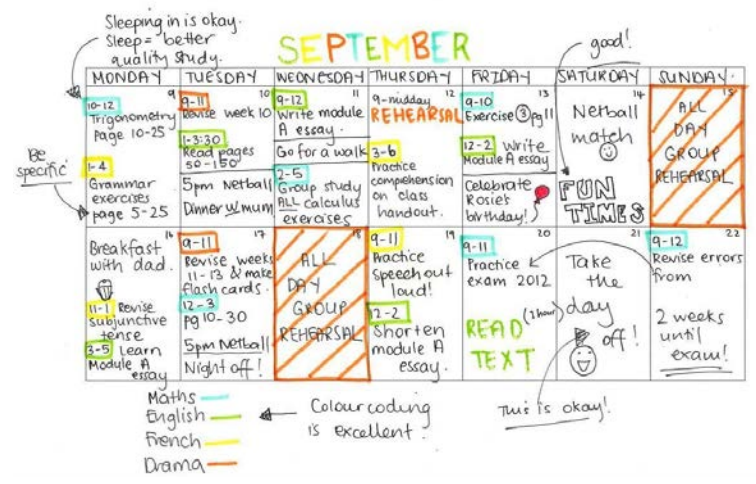 Sleeping in is okay.
Sleep = better
quality study.
SEPTEMBER
good!
MONDAY TUESDAY WEDNESDAY THURSDAY FRIDAY SATURDAY SUNDAY.
Be
specific
9
10-12
Trigonometry
page 10-25
1-4
Grammar
exercises
page 5-25
10
9-11
Revise week 10
1-3:30
Read pages
50-150
5pm Netball
Dinner w mum
11
9-12
Write module
A essay.
Go for a walk
2-5
Group study
ALL calculus
exercises
12
9-midday
REHEARSAL
3-6
Practice
comprehension
on class
handout.
13
9-10
Exercise 3 pg 11
12-2 Write
Module A essay
Celebrate
Rosie's
birthday!
14
Netball
match
FUN
TIMES
15
ALL
DAY
GROUP
REHEARSAL
16
Breakfast
with dad.
11-1 Revise
subjunctive
tense
3-5 Learn
Module A
essay
17
9-11
Revise weeks
11-13 & make
flash cards.
12-3
pg 10-30
5pm Netball
Night off!
18
ALL
DAY
GROUP
REHEARSAL
19
9-11
Practice
speech out
loud!
12-2
Shorten
module A
essay.
20
9-11
Practice
exam 2012
READ (1 hour)
TEXT
21
Take
the
day
off!
22
9-12
Revise errors
from
2 weeks
until
exam!
Maths
English
French
Drama
Colourcoding
is excellent.
This is okay!